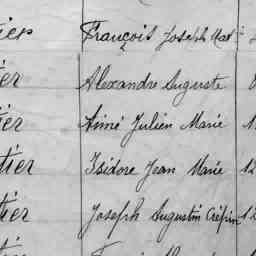 ier François Joseph Mat
tier Alexandre Auguste
tier Aimé Julien Marie 1
tier Isidore Jean Marie 12
tier Joseph Augustin Crépin 12